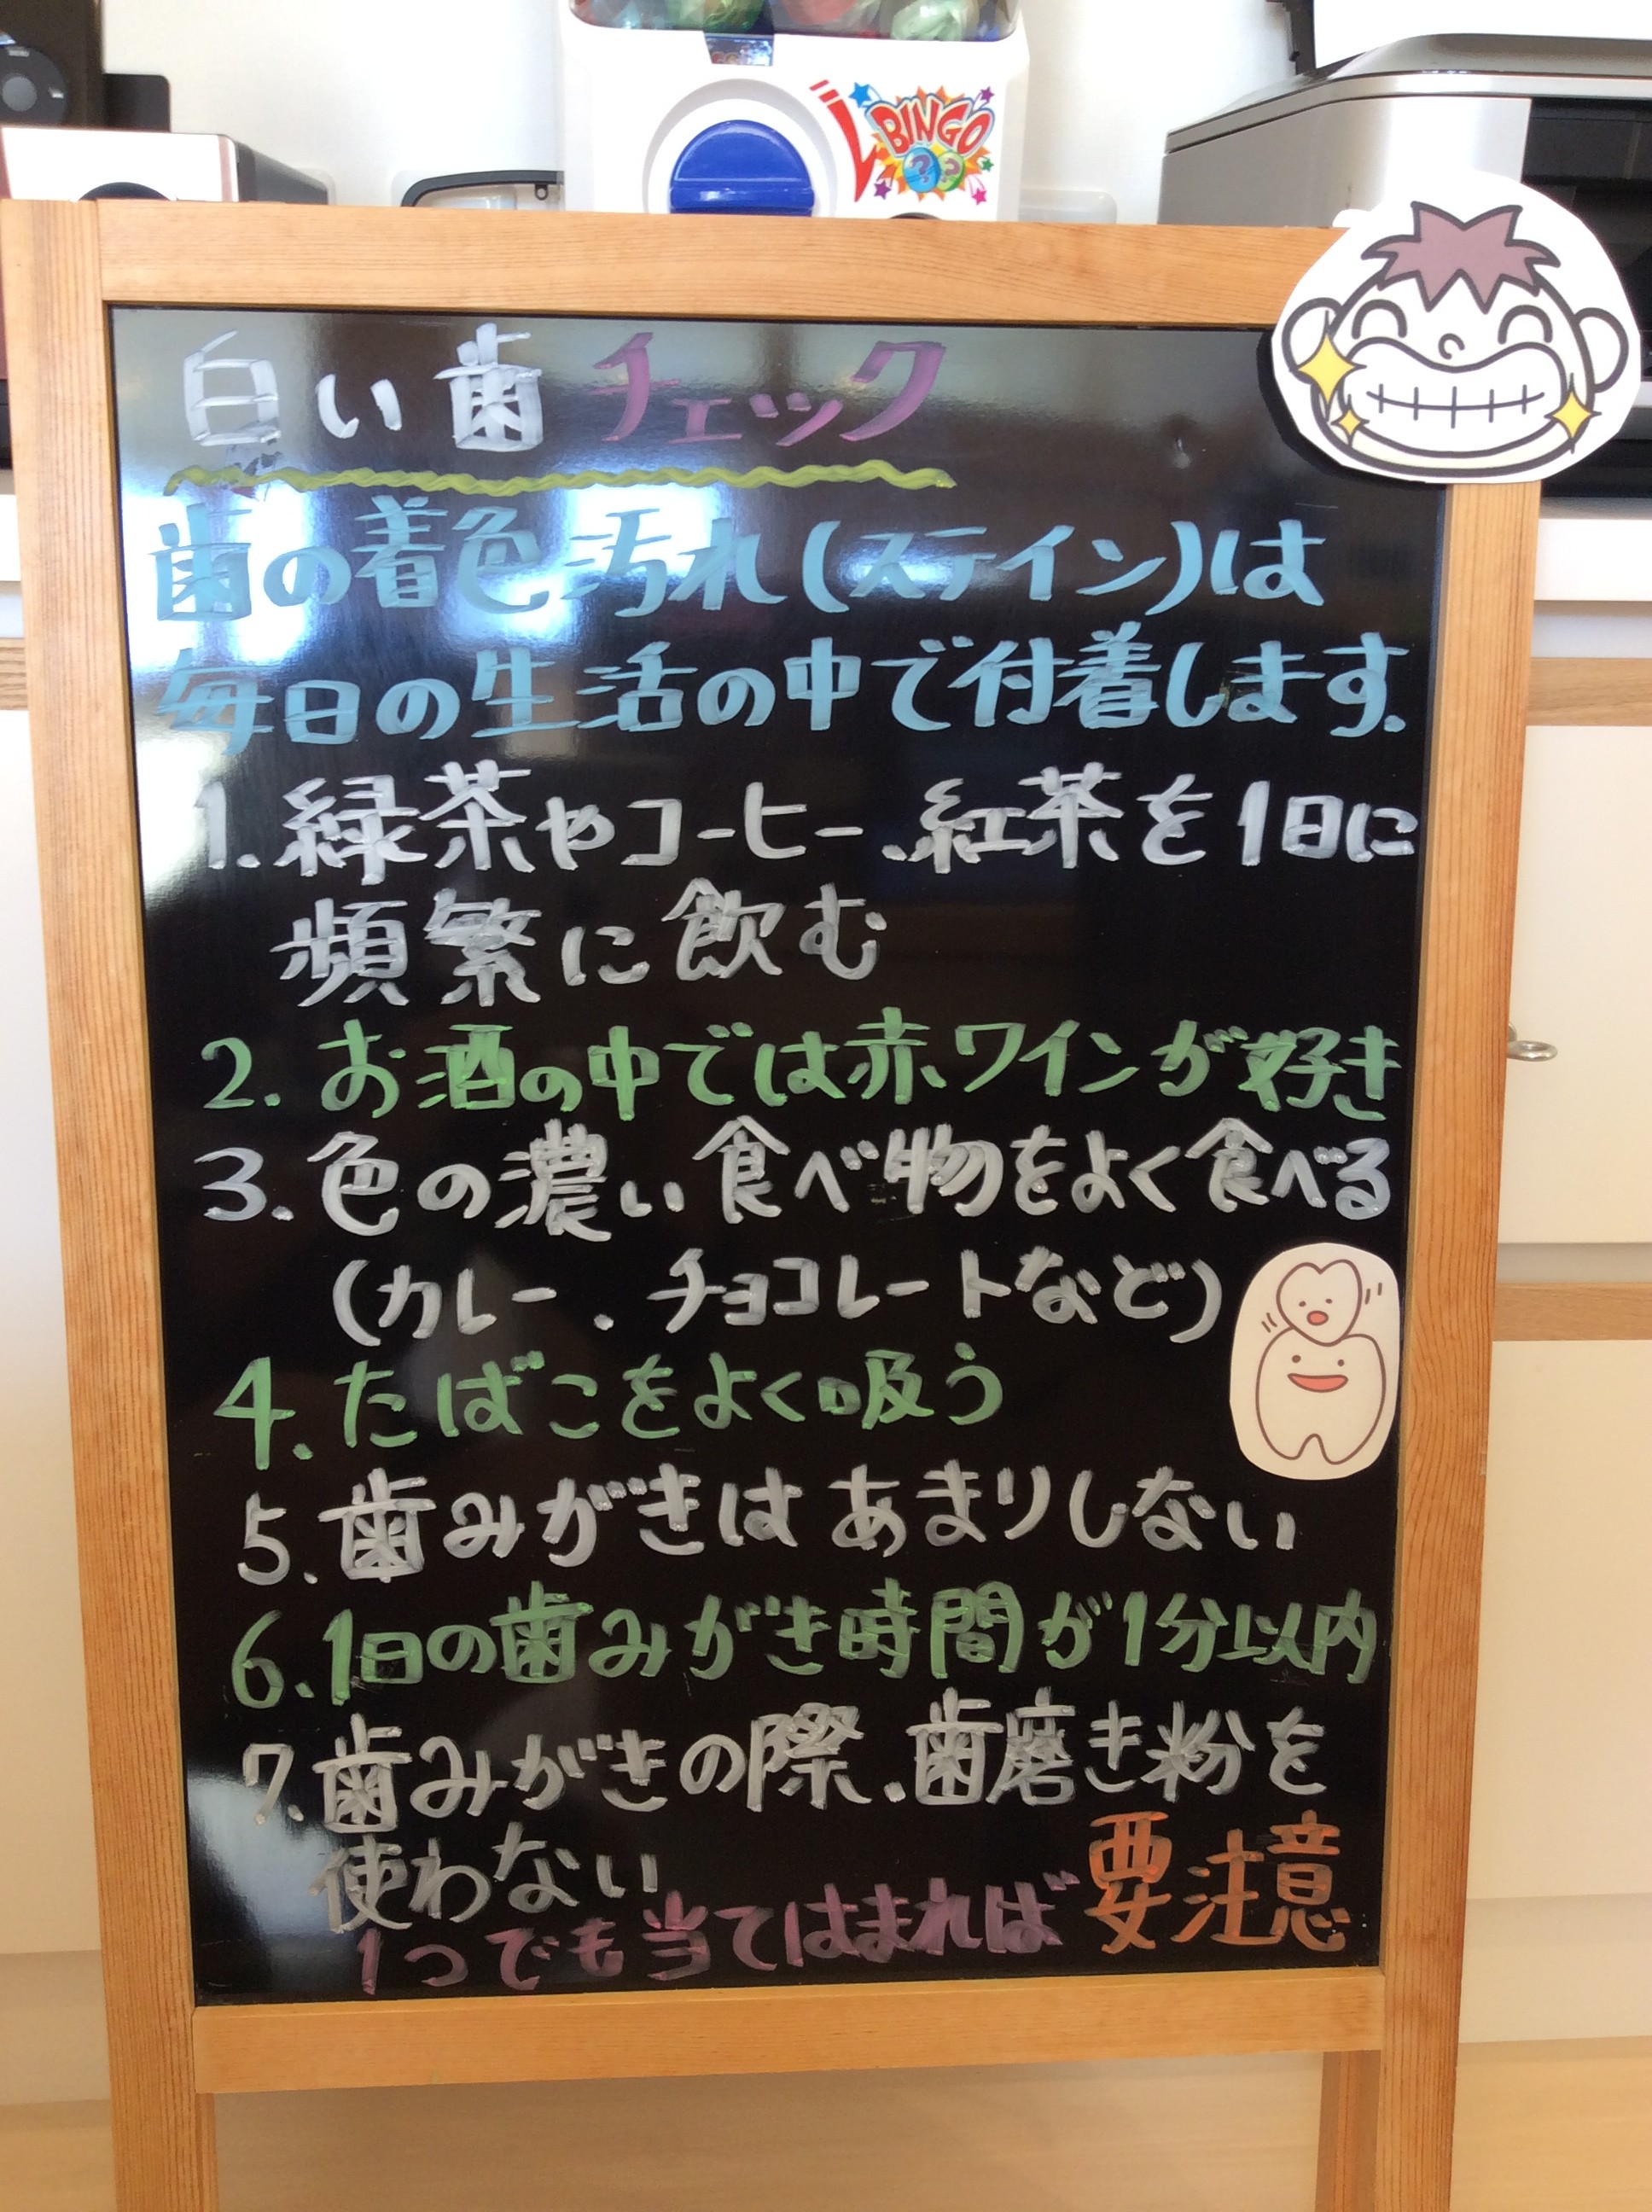 BINGO
??
白い歯チェック
歯の着色汚れ(ステイン)は
毎日の生活の中で付着します.
1.緑茶やコーヒー、紅茶を1日に
頻繁に飲む
2.お酒の中では赤ワインが好き
3.色の濃い食べ物をよく食べる
(カレー、チョコレートなど)
4.たばこをよく吸う
5.歯みがきはあまりしない
6.1日の歯みがき時間が1分以内
7.歯みがきの際、歯磨き粉を
使わない
1つでも当てはまれば要注意